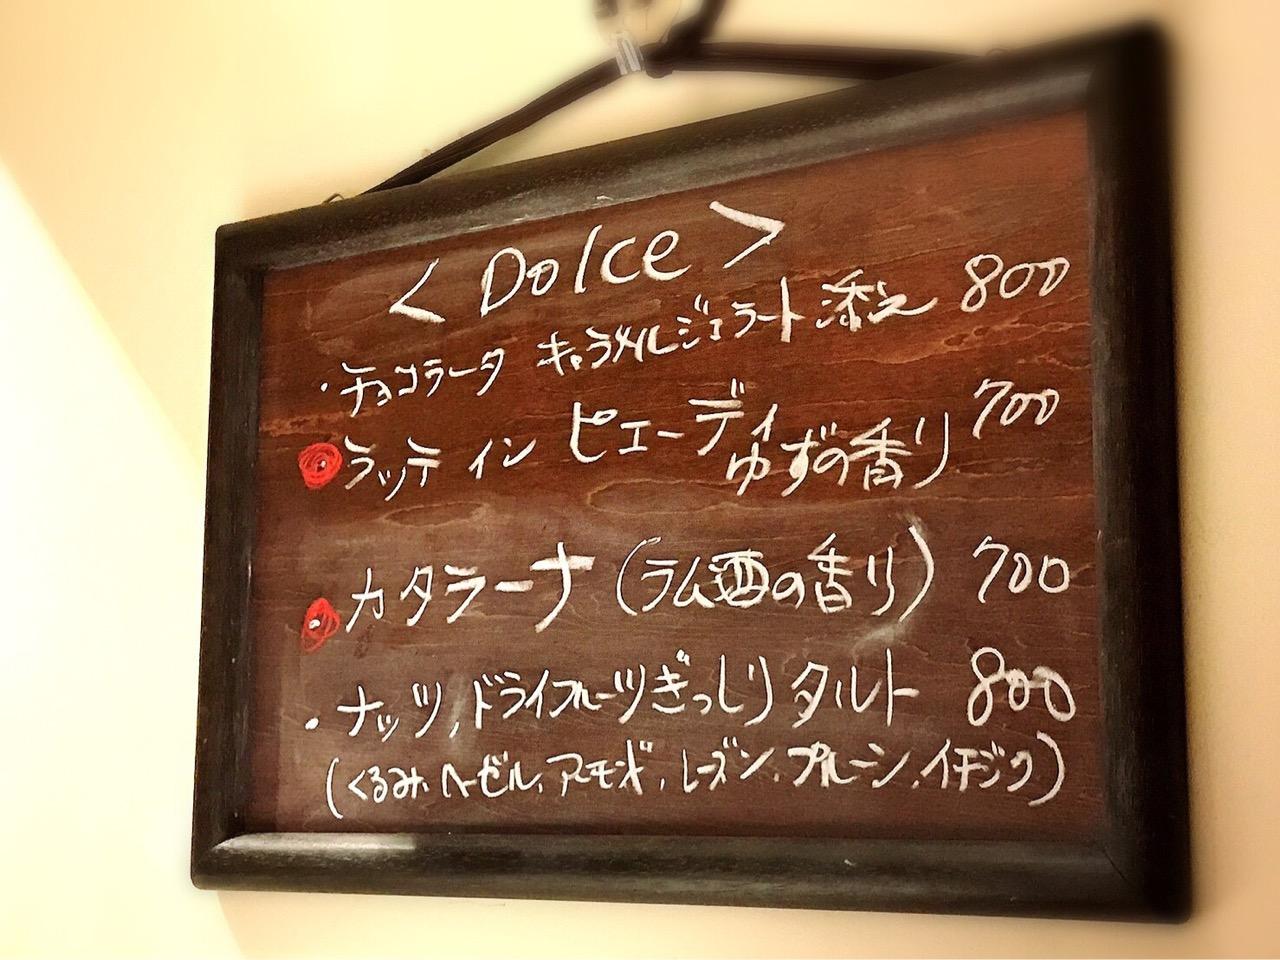 < Dolce >
・チョコラータ キャラメルジェラート添え 800
・ラッテ イン ピエーディ 700
ゆずの香り
・カタラーナ (ラム酒の香り) 700
・ナッツ,ドライフルーツぎっしりタルト 800
(くるみ,ヘーゼル,アーモンド,レーズン,プルーン,イチジク)